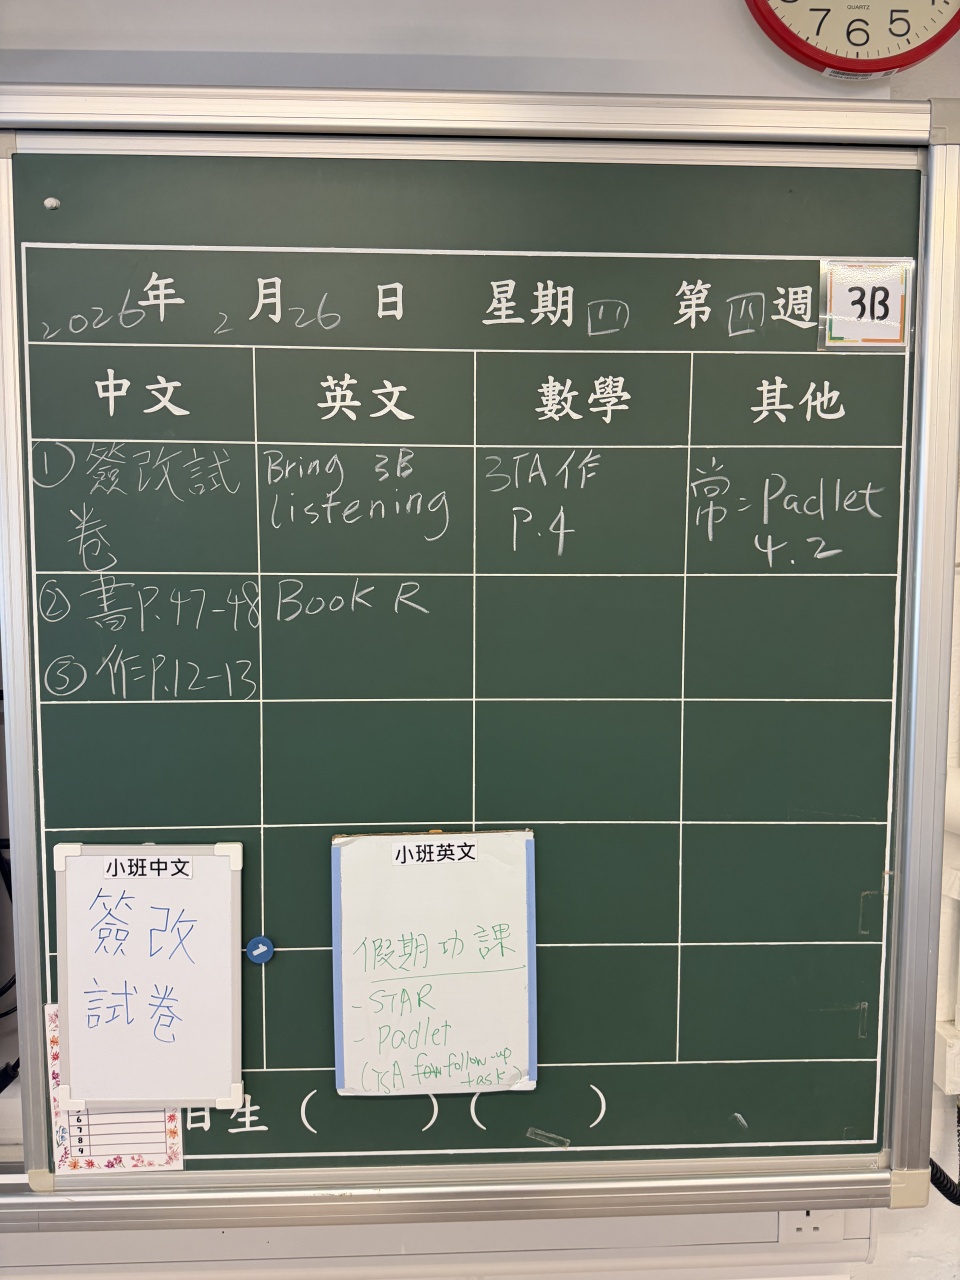 QUARTZ
7 6 5
2026年 2月26日 星期四 第四週 3B
中文 英文 數學 其他
①簽改試卷
Bring 3B
listening
3TA作
P.4
常=Padlet
4.2
②書P.47-48
Book R
③作P.12-13
小班中文
簽改
試卷
小班英文
假期功課
- STAR
- Padlet
(TSA follow-up
task)
日生 ( ) ( )
6
7
8
9